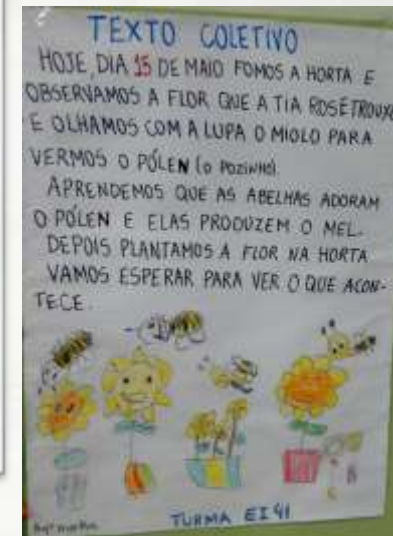 TEXTO COLETIVO
HOJE, DIA 15 DE MAIO FOMOS A HORTA E
OBSERVAMOS A FLOR QUE A TIA ROSE TROUXE
E OLHAMOS COM A LUPA O MIOLO PARA
VERMOS O PÓLEN (O POZINHO).
APRENDEMOS QUE AS ABELHAS ADORAM
O PÓLEN E ELAS PRODUZEM O MEL.
DEPOIS PLANTAMOS A FLOR NA HORTA
VAMOS ESPERAR PARA VER O QUE ACON-
TECE.
TURMA EI41